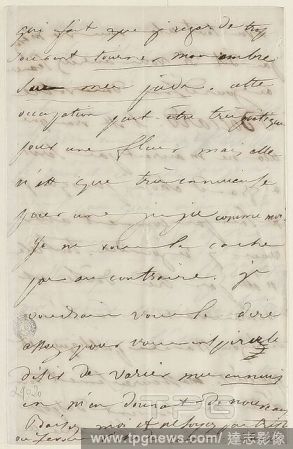 qui fait que je regarde trop
souvent tourner mon ombre
sur mes pieds. cette
occupation peut être très poétique
pour une fleur mais elle
n'est que très ennuyeuse
pour une comme moi.
Je ne vous le cache
pas au contraire. je
voudrais vous le dire
assez pour vous inspirer le
désir de varier mes ennuis
en m'en donnant de nouveaux
TPG
www.tpgnews.com / 達志影像